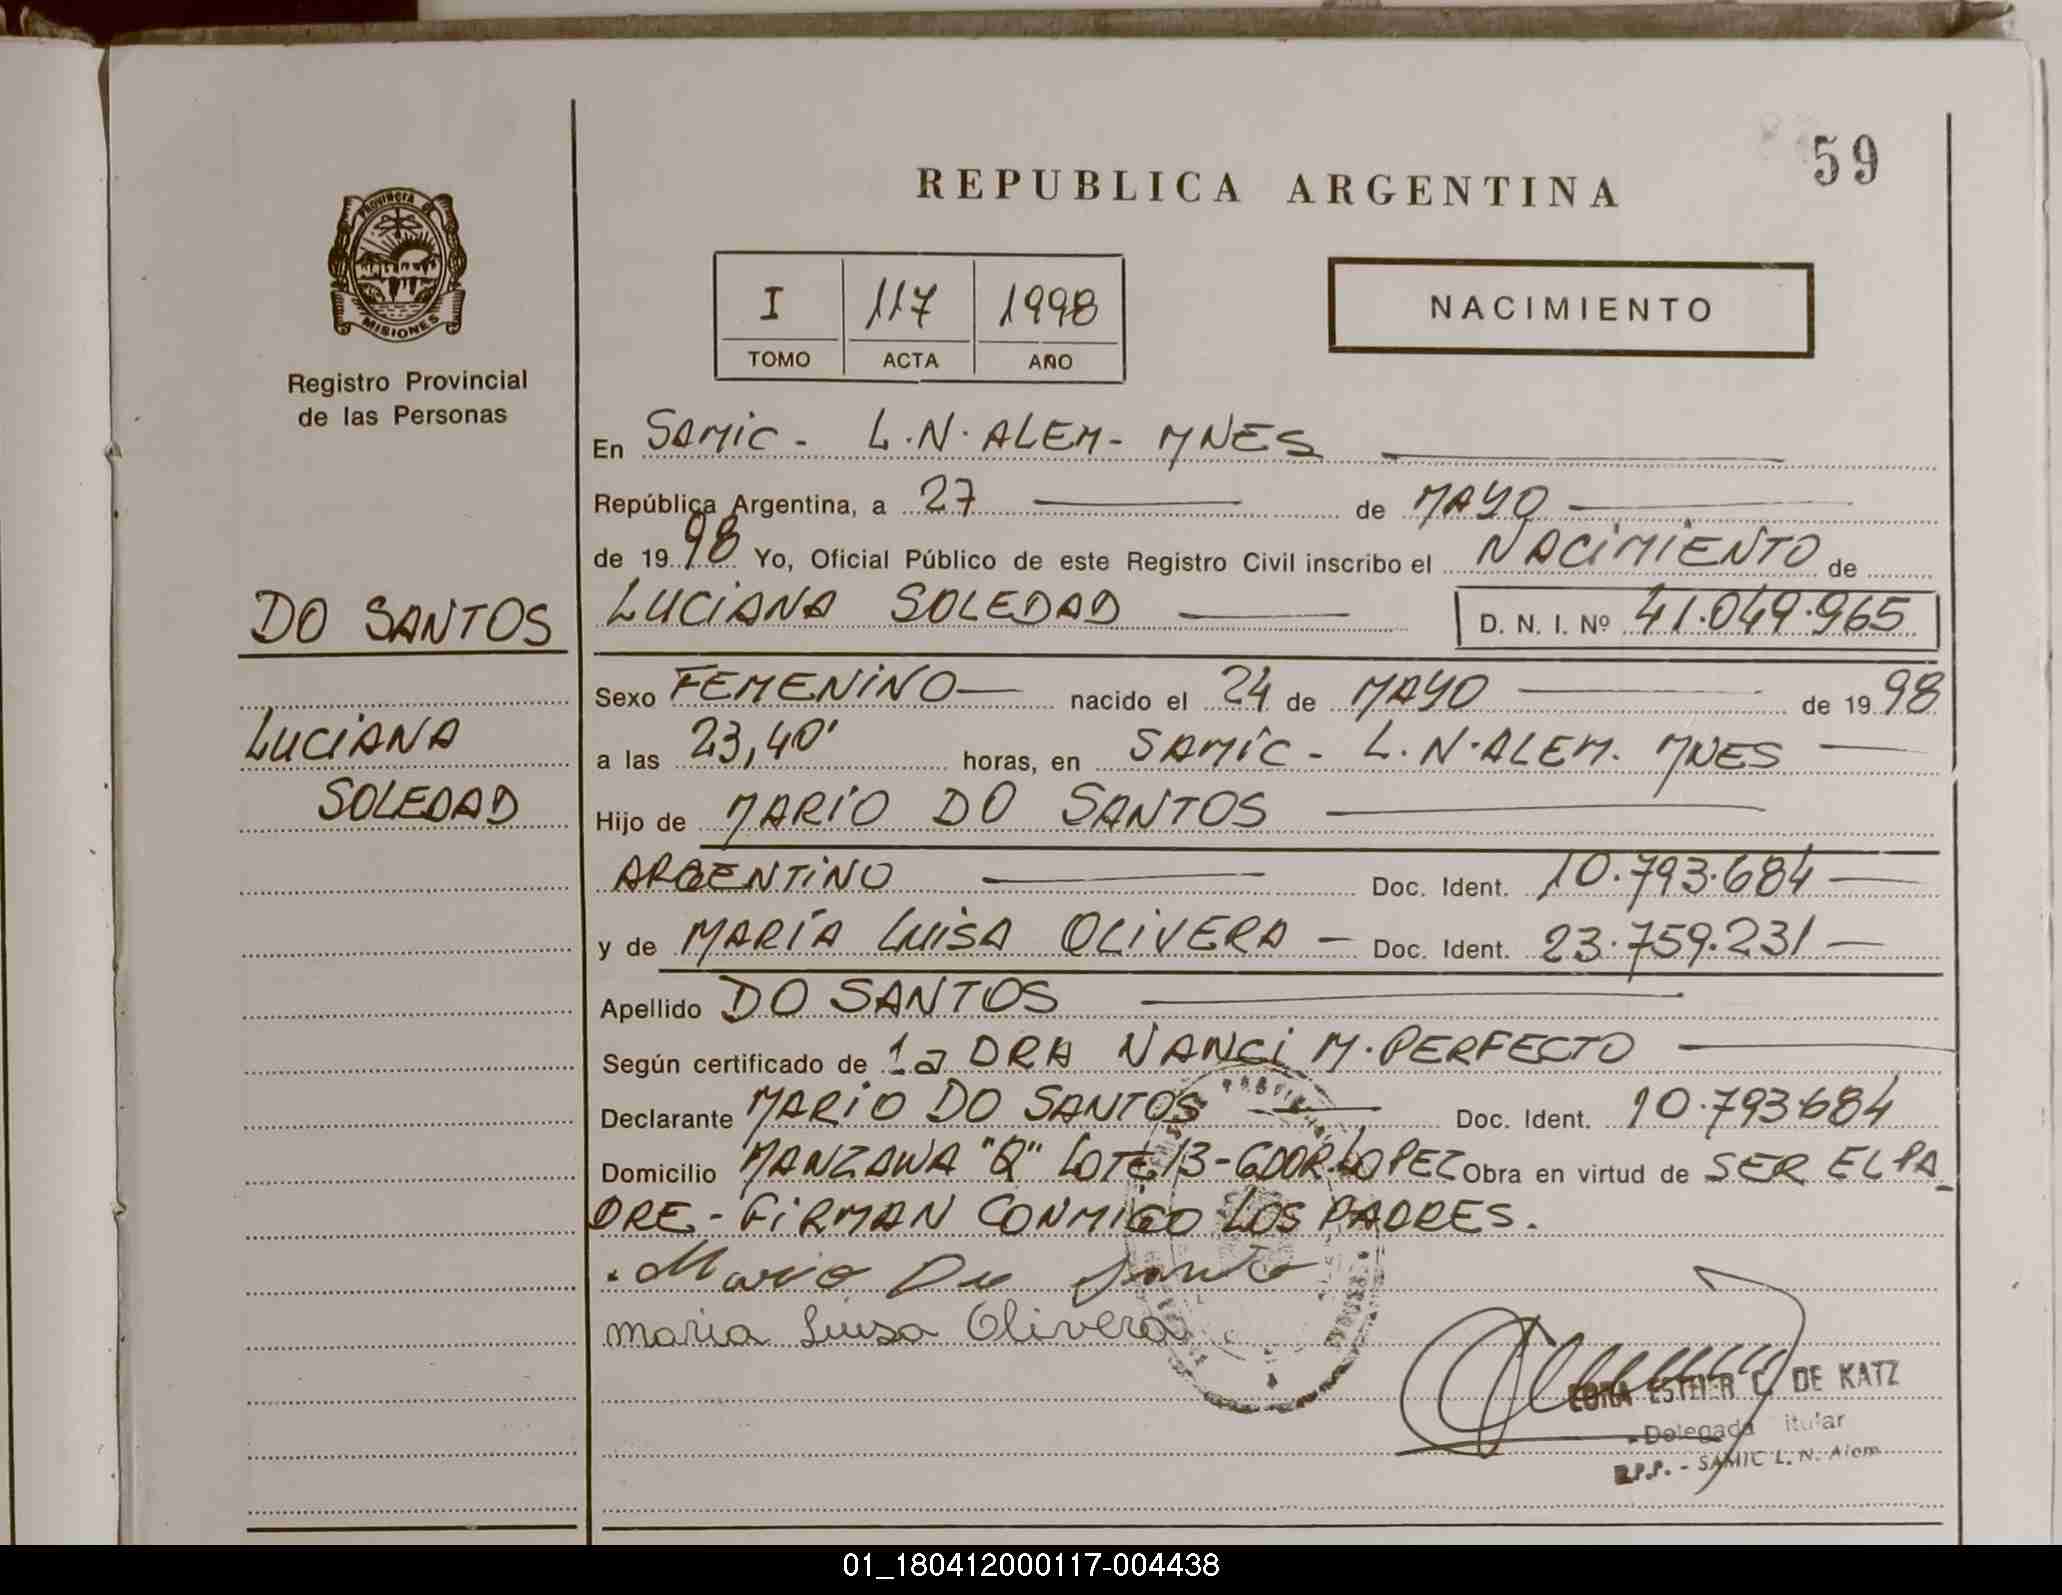 59
REPUBLICA ARGENTINA
PROVINCIA DE
MISIONES
Registro Provincial
de las Personas
I 117 1998
TOMO ACTA AÑO
NACIMIENTO
En SAMIC - L.N. ALEM - MNES
República Argentina, a 27 de MAYO
de 1998 Yo, Oficial Público de este Registro Civil inscribo el NACIMIENTO de
DO SANTOS
LUCIANA SOLEDAD
D. N. I. Nº 41.049.965
LUCIANA
SOLEDAD
Sexo FEMENINO nacido el 24 de MAYO de 1998
a las 23,40' horas, en SAMIC - L.N. ALEM. MNES
Hijo de MARIO DO SANTOS
ARGENTINO Doc. Ident. 10.793.684
y de MARÍA LUISA OLIVERA - Doc. Ident. 23.759.231
Apellido DO SANTOS
Según certificado de 1a DRA NANCI M. PERFECTO
Declarante MARIO DO SANTOS Doc. Ident. 10.793.684
Domicilio MANZANA "Q" LOTE 13 - GDOR. LOPEZ Obra en virtud de SER EL PA
DRE - FIRMAN CONMIGO LOS PADRES.
Mario Do Santo
maria Luisa Olivera
ESTHER C. DE KATZ
Delegada Titular
R.P.P. - SAMIC L. N. Alem
01_180412000117-004438